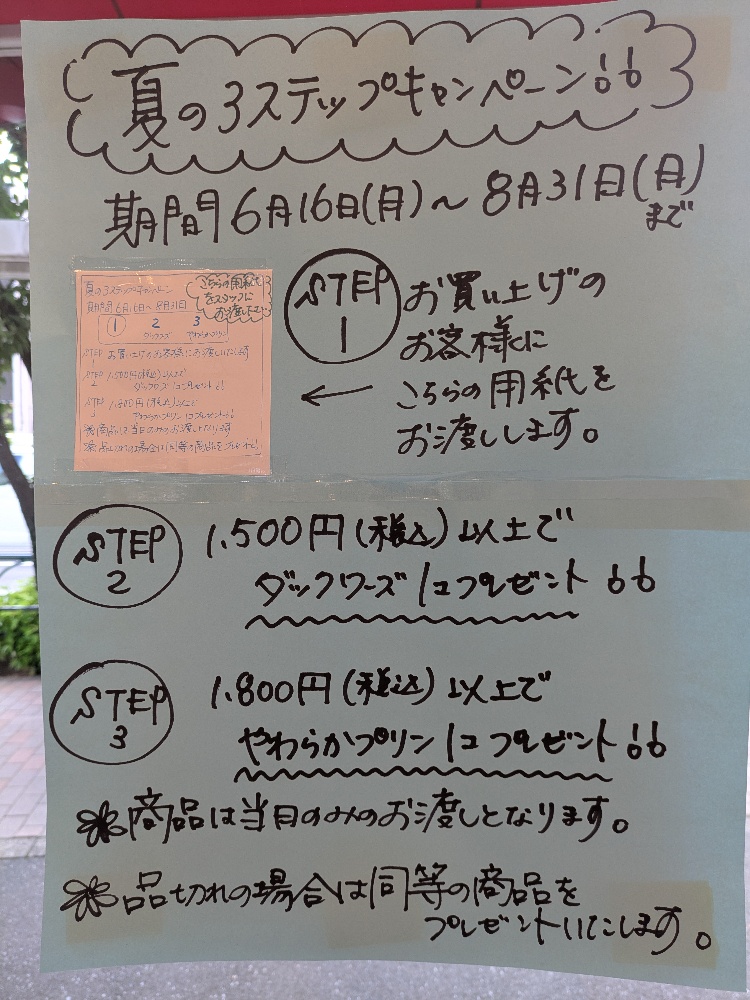 夏の3ステップキャンペーン!!
期間6月16日(月)~8月31日(月)
まで
夏の3ステップキャンペーン
期間6月16日~8月31日
こちらの用紙を
スタッフに
お渡し下さい
1 2 3
ダックワーズ やわらかプリン
STEP
1
お買い上げのお客様にお渡しいたします
STEP
2
1.500円(税込)以上で
ダックワーズ1コプレゼント!!
STEP
3
1.800円(税込)以上で
やわらかプリン1コプレゼント!!
商品は当日のみのお渡しとなります
STEP
1
お買い上げの
お客様に
←こちらの用紙を
お渡しします。
STEP
2
1.500円(税込)以上で
ダックワーズ1コプレゼント!!
STEP
3
1.800円(税込)以上で
やわらかプリン1コプレゼント!!
商品は当日のみのお渡しとなります。
品切れの場合は同等の商品を
プレゼントいたします。